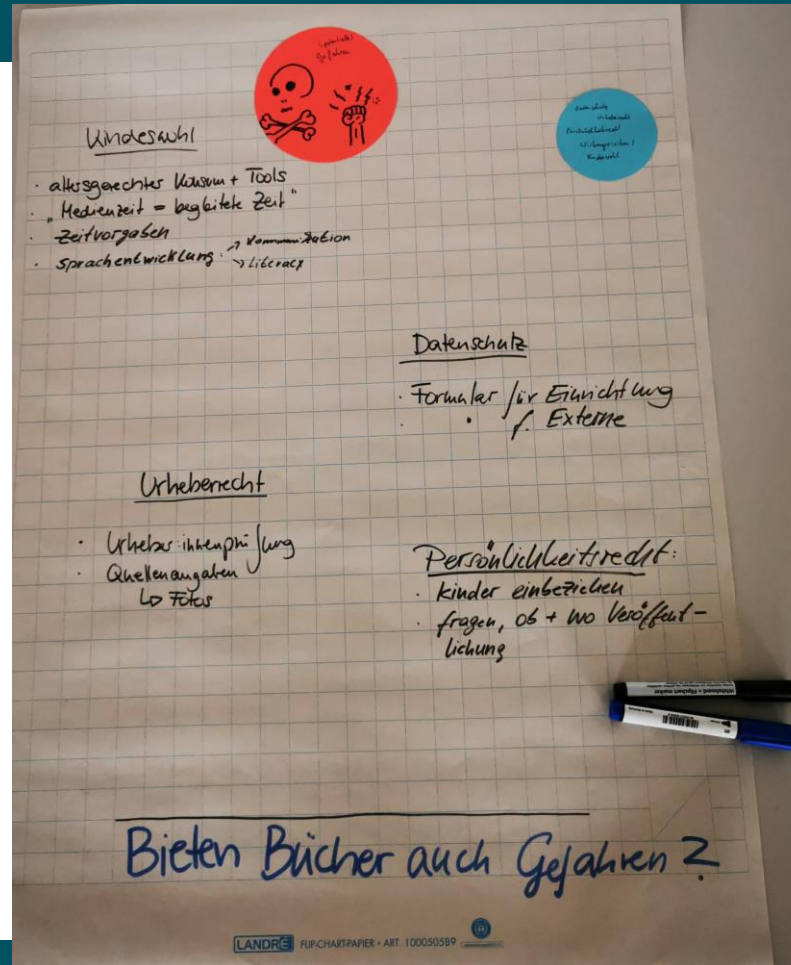 potentielle
Gefahren
Datenschutz
Urheberrecht
Persönlichkeitsrecht
Kindeswohl
Kindeswohl
· altersgerechter Konsum + Tools
· „Medienzeit = begleitete Zeit"
· Zeitvorgaben
· Sprachentwicklung: → Kommunikation
→ Literacy
Datenschutz
· Formular für Einrichtung
· " f. Externe
Urheberrecht
· Urheber:innenprüfung
· Quellenangaben
↳ Fotos
Persönlichkeitsrecht:
· Kinder einbeziehen
· fragen, ob + wo Veröffent-
lichung
Whiteboard + Flipchart marker
Bieten Bücher auch Gefahren?
LANDRÉ FLIP-CHART-PAPIER • ART. 100050589